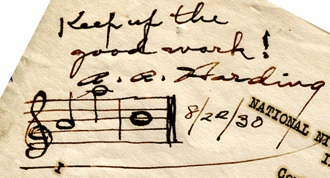 Keep up the
good work!
A. A. Harding
8/22/30
NATIONAL